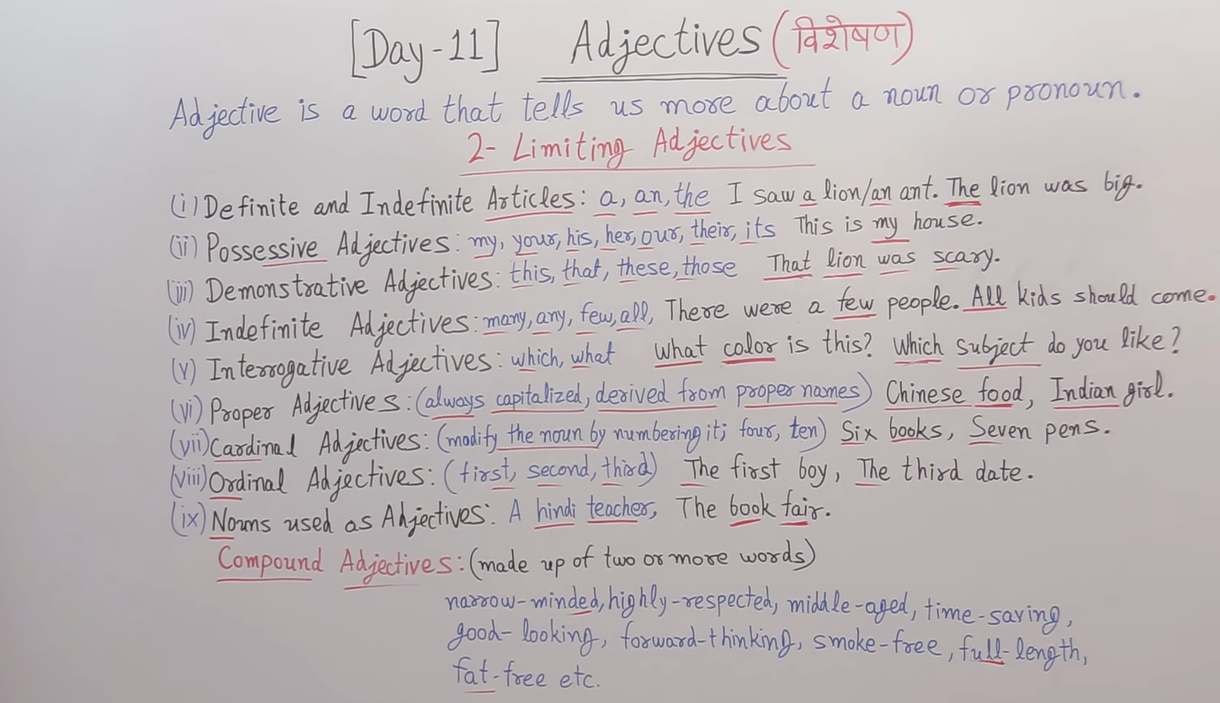 [Day-11] Adjectives (विशेषण)
Adjective is a word that tells us more about a noun or pronoun.
2- Limiting Adjectives
(i) Definite and Indefinite Articles: a, an, the I saw a lion/an ant. The lion was big.
(ii) Possessive Adjectives: my, your, his, her, our, their, its This is my house.
(iii) Demonstrative Adjectives: this, that, these, those That lion was scary.
(iv) Indefinite Adjectives: many, any, few, all, There were a few people. All kids should come.
(v) Interrogative Adjectives: which, what What color is this? Which subject do you like?
(vi) Proper Adjectives: (always capitalized, derived from proper names) Chinese food, Indian girl.
(vii) Cardinal Adjectives: (modify the noun by numbering it; four, ten) Six books, Seven pens.
(viii) Ordinal Adjectives: (first, second, third) The first boy, The third date.
(ix) Nouns used as Adjectives: A hindi teacher, The book fair.
Compound Adjectives: (made up of two or more words)
narrow-minded, highly-respected, middle-aged, time-saving,
good-looking, forward-thinking, smoke-free, full-length,
fat-free etc.